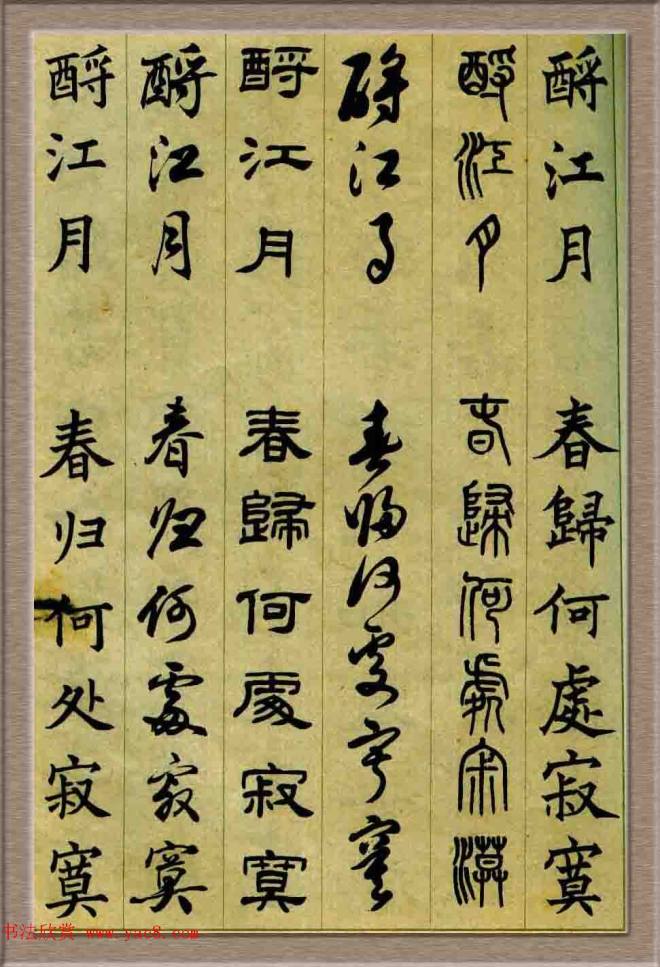 酹江月 春歸何處寂寞
酹江月 春歸何處寂寞
酹江月 春歸何處寂寞
酹江月 春歸何處寂寞
酹江月 春归何處寂寞
酹江月 春归何处寂寞
书法欣赏 www.yac8.com